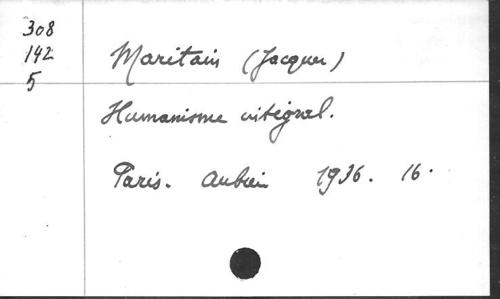 308
142
5
Maritain (Jacques)
Humanisme intégral.
Paris. Aubier 1936. 16.